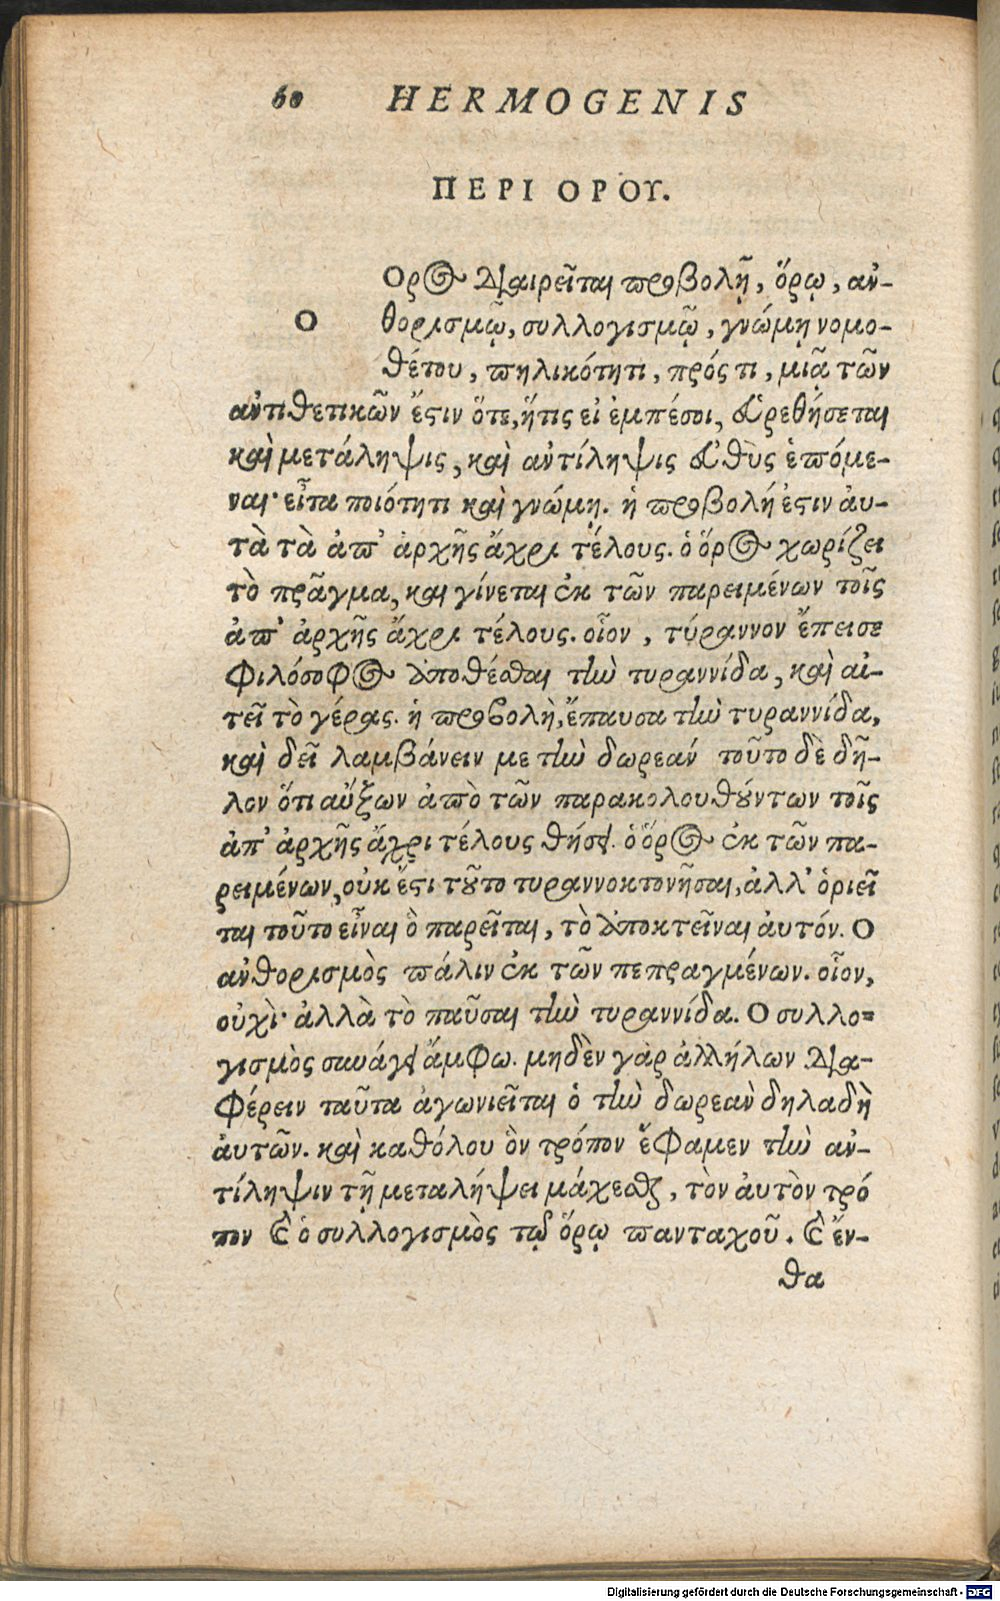 60 HERMOGENIS
ΠΕΡΙ ΟΡΟΥ.
Ορος διαιρεῖται προβολῇ, ὅρῳ, ἀν-
Ο θορισμῷ, συλλογισμῷ, γνώμῃ νομο-
θέτου, πηλικότητι, πρός τι, μιᾷ τῶν
ἀντιθετικῶν ἔστιν ὅτε, ἥτις εἰ ἐμπέσοι, εὑρεθήσεται
καὶ μετάληψις, καὶ ἀντίληψις εὐθὺς ἑπόμε-
ναι· εἶτα ποιότητι καὶ γνώμῃ. ἡ προβολή ἐστιν ἀυ-
τὰ τὰ ἀπ' ἀρχῆς ἄχρι τέλους. ὁ ὅρος χωρίζει
τὸ πρᾶγμα, και γίνεται ἐκ τῶν παρειμένων τοῖς
ἀπ' ἀρχῆς ἄχρι τέλους. οἷον, τύραννον ἔπεισε
φιλόσοφος ἀποθέσθαι τὴν τυραννίδα, καὶ αἰ-
τεῖ τὸ γέρας. ἡ προβολὴ, ἔπαυσα τὴν τυραννίδα,
καὶ δεῖ λαμβάνειν με τὴν δωρεάν τοῦτο δὲ δῆ-
λον ὅτι αὔξων ἀπὸ τῶν παρακολουθούντων τοῖς
ἀπ' ἀρχῆς ἄχρι τέλους θήσει. ὁ ὅρος ἐκ τῶν πα-
ρειμένων, οὐκ ἔστι τοῦτο τυραννοκτονῆσαι, ἀλλ' ὁριεῖ
ται τοῦτο εἶναι ὃ παρεῖται, τὸ ἀποκτεῖναι ἀυτόν. Ο
ἀνθορισμὸς πάλιν ἐκ τῶν πεπραγμένων. οἷον,
οὐχὶ· ἀλλὰ τὸ παῦσαι τὴν τυραννίδα. Ο συλλο-
γισμὸς συνάγει ἄμφω. μηδὲν γὰρ ἀλλήλων δια-
φέρειν ταῦτα ἀγωνιεῖται ὁ τὴν δωρεὰν δηλαδὴ
ἀυτῶν. καὶ καθόλου ὃν τρόπον ἔφαμεν τὴν ἀν-
τίληψιν τῇ μεταλήψει μάχεσθαι, τὸν ἀυτὸν τρό
πον καὶ ὁ συλλογισμὸς τῷ ὅρῳ πανταχοῦ. καὶ ἔν-
θα
Digitalisierung gefördert durch die Deutsche Forschungsgemeinschaft - DFG